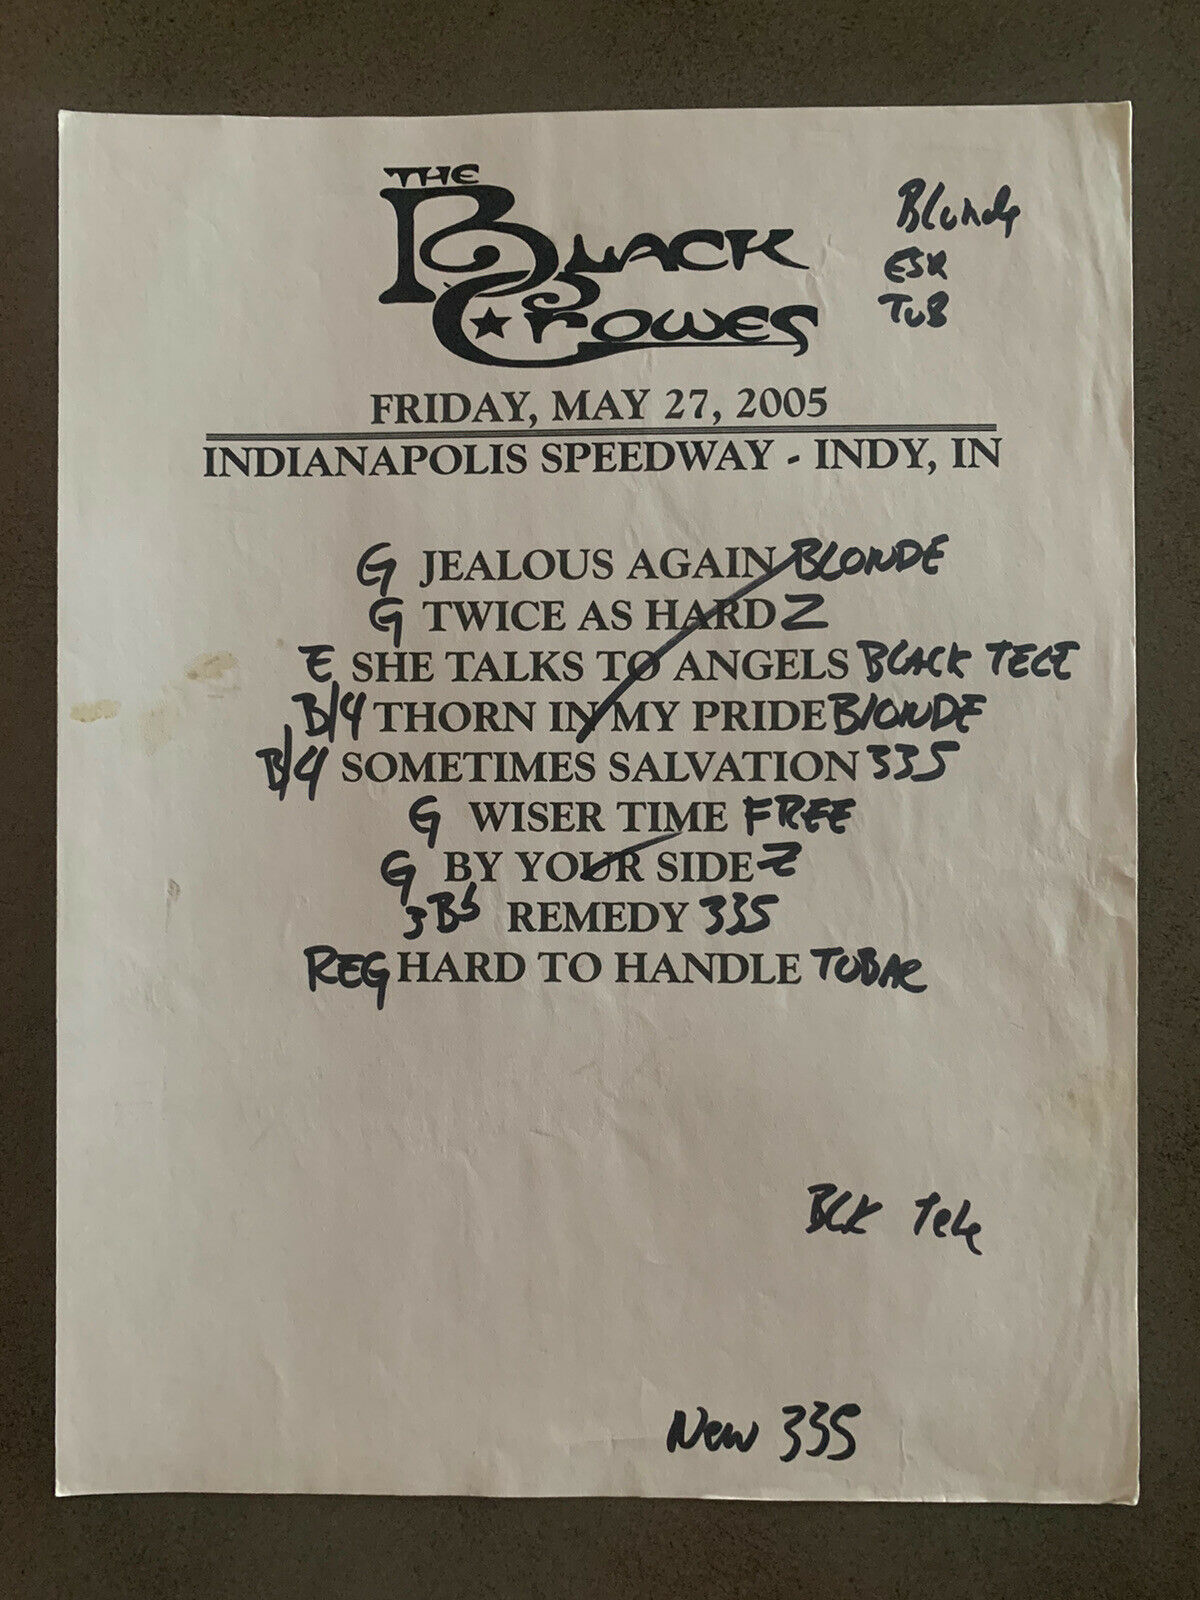 THE
BLACK
CROWES
Blonde
ESQ
TUB
FRIDAY, MAY 27, 2005
INDIANAPOLIS SPEEDWAY - INDY, IN
G JEALOUS AGAIN BLONDE
G TWICE AS HARD Z
E SHE TALKS TO ANGELS BLACK TELE
B/4 THORN IN MY PRIDE BLONDE
B/4 SOMETIMES SALVATION 335
G WISER TIME FREE
G BY YOUR SIDE Z
3Bs REMEDY 335
REG HARD TO HANDLE TOBAC
BLK Tele
New 335